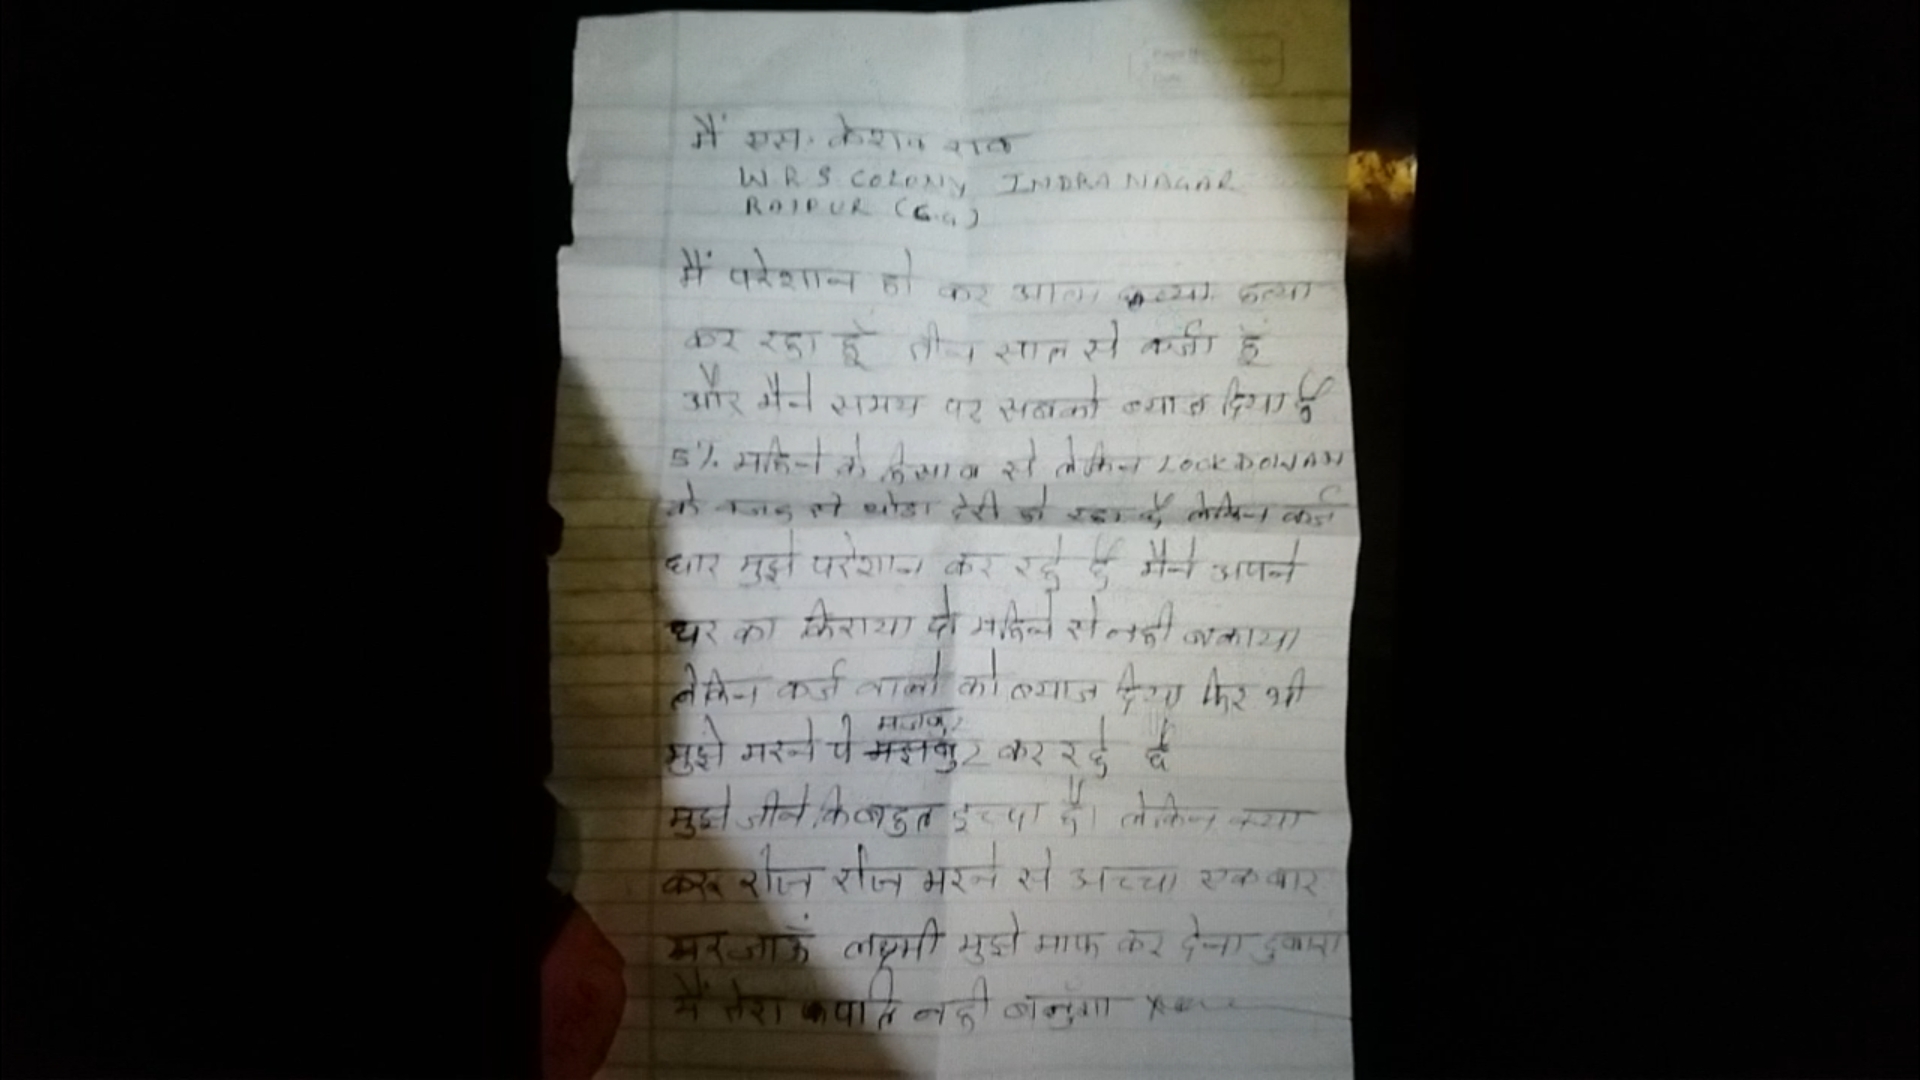 मैं एस. केशव राव
W.R.S COLONY INDRA NAGAR
RAIPUR (C.G)
मैं परेशान हो कर आत्म हत्या
कर रहा हूँ तीन साल से कर्जा है
और मैने समय पर सबको ब्याज दिया है
5% महिने के हिसाब से लेकिन
के वजह से थोडा देरी हो रहा है लेकिन कर्ज
धार मुझे परेशान कर रहे है मैने अपने
घर का किराया दो महिने से नही
लेकिन कर्ज वालो को ब्याज दिया फिर भी
मुझे मरने पे मजबुर कर रहे है
मुझे जीने कि बहुत इच्छा है। लेकिन क्या
करू रोज रोज मरने से अच्चा एक बार
मर जाऊँ लक्ष्मी मुझे माफ कर देना दुबारा
मैं तेरा पति नही बनुंगा